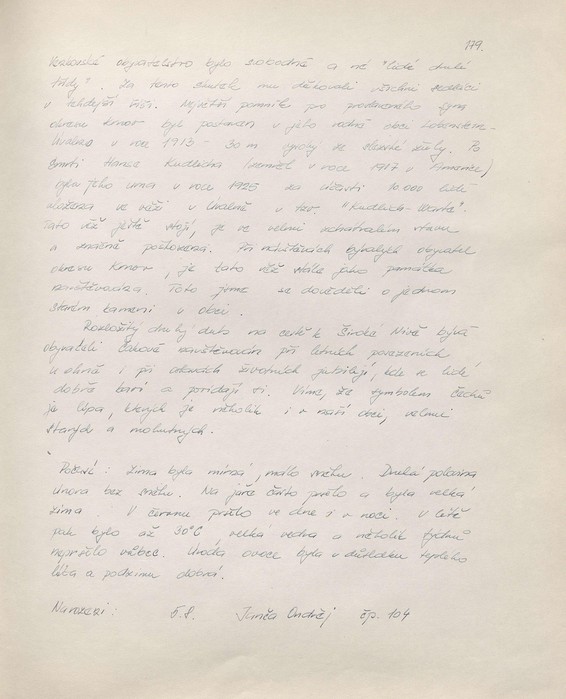 179.
obyvatelstvo bylo svobodné a né "lidé druhé
třídy". Za tento skutek mu děkovali všichni sedláci
v tehdejší říši. Největší pomník pro proslaveného syna
okresu Krnov byl postaven v jeho rodné obci Lobenstein-
Úvalno v roce 1913 - 30 m vysoký ze slezské žuly. Po
smrti Hanse Kudlicha (zemřel v roce 1917 v Americe)
byla jeho urna v roce 1925 za účasti 10.000 lidí
uložena ve věži v Úvalně v tzv. "Kudlich-Warte".
Tato věž ještě stojí, je ve velmi zchátralém stavu
a značně poškozena. Při návštěvách bývalých obyvatel
okresu Krnov, je tato věž stále jako památka
navštěvována. Toto jsme se dověděli o jednom
starém kameni v obci.
Rozložitý druhý dub na cestě k Široké Nivě bývá
obyvateli Čakové navštěvován při letních
u ohně i při oslavách životních jubilejí, kde se lidé
dobře baví a pořídají si. Víme, že symbolem Čechů
je lípa, kterých je několik i v naší obci, velmi
starých a mohutných.
Počasí: Zima byla mírná, málo sněhu. Druhá polovina
února bez sněhu. Na jaře často pršelo a byla velká
zima. V červnu pršelo ve dne i v noci. V létě
pak bylo až 30°C, velká vedra a několik týdnů
nepršelo vůbec. Úroda ovoce byla v důsledku teplého
léta a podzimu dobrá.
Narození: 5.8. Ondřej čp. 104